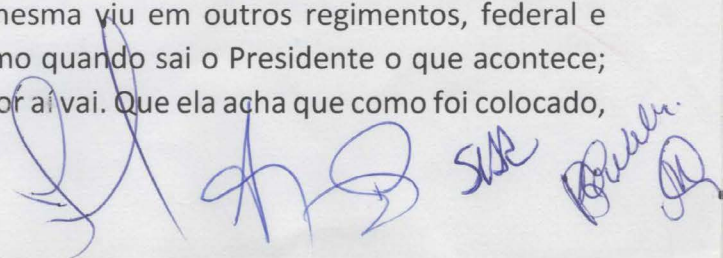 mesma viu em outros regimentos, federal e
mo quando sai o Presidente o que acontece;
or aí vai. Que ela acha que como foi colocado,